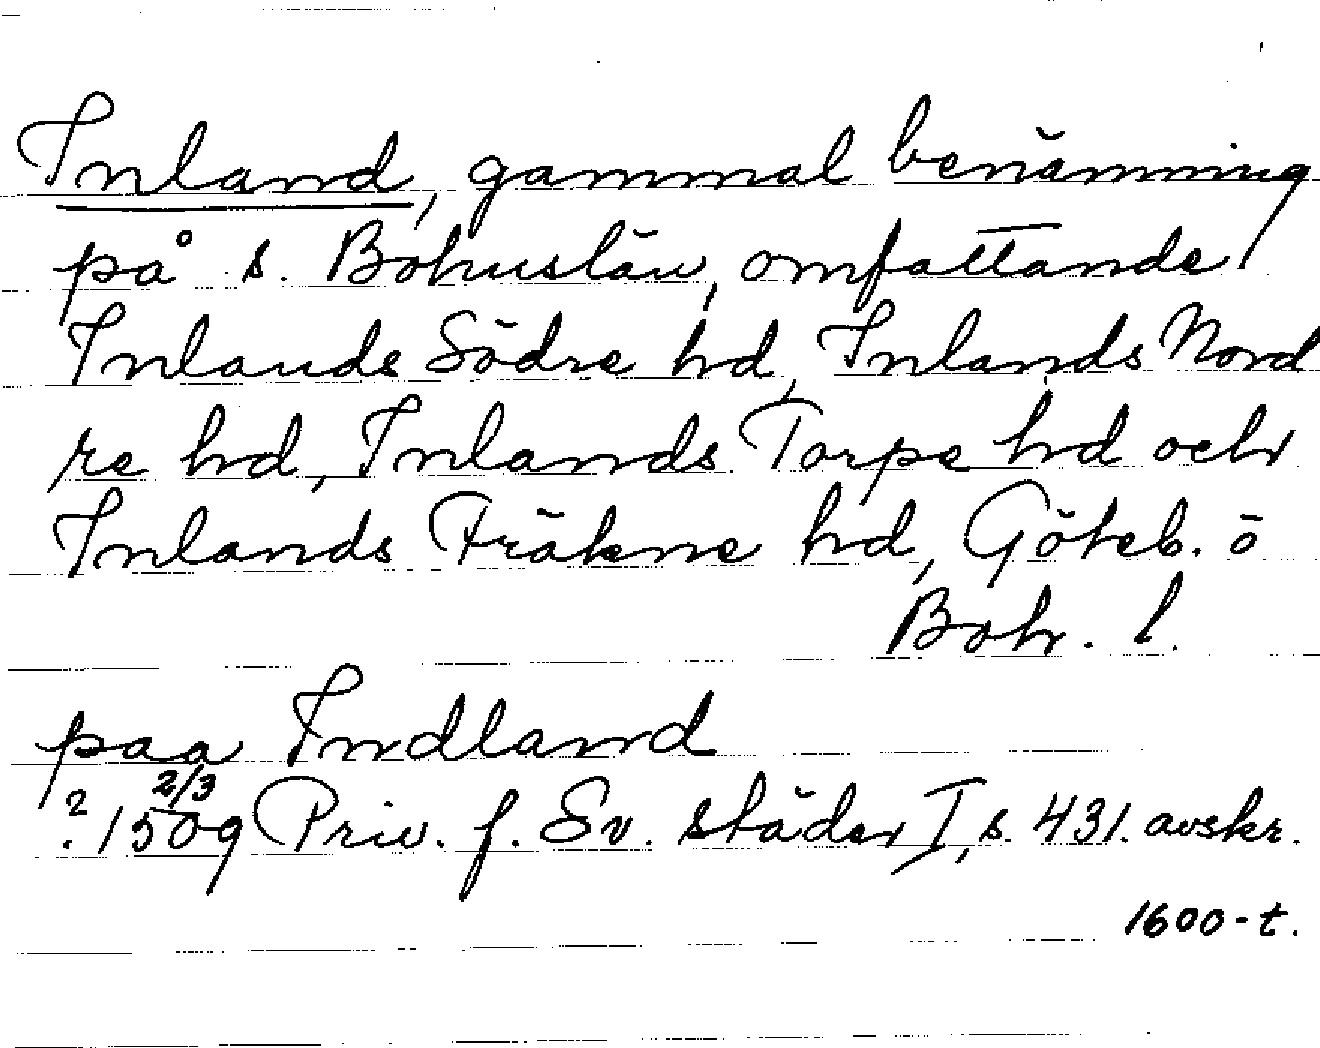 Inland, gammal benämning
på s. Bohuslän, omfattande
Inlands Södre hd, Inlands Nord
re hd, Inlands Torpe hd och
Inlands Fräkne hd, Göteb. o
Boh. l.
paa Indland
2/3
? 1509 Priv. f. Sv. städer I, s. 431. avskr.
1600-t.